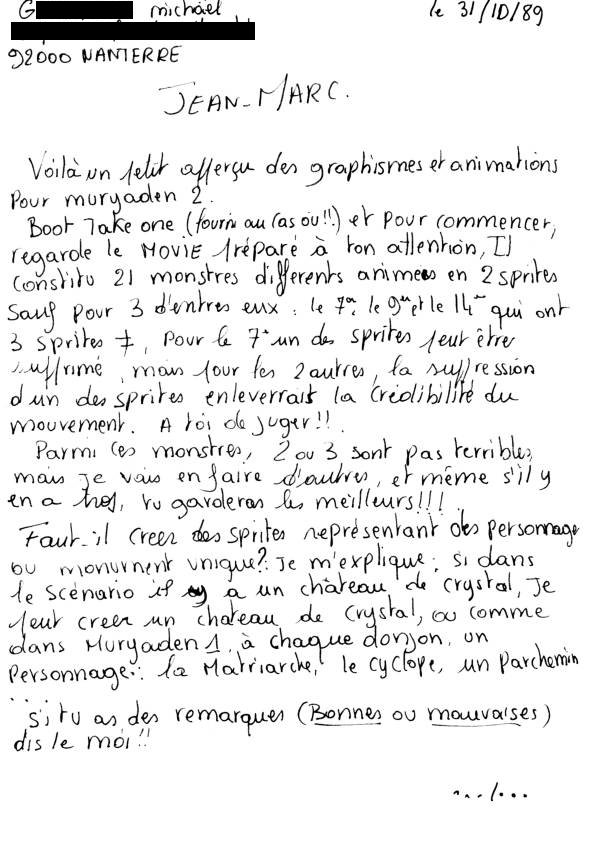 G michäel le 31/10/89
92000 NANTERRE
JEAN-MARC.
Voilà un petit apperçu des graphismes et animations
Pour muryaden 2.
Boot Take one (fourni au cas où!!) et pour commencer,
regarde le MOVIE préparé à ton attention, Il
constitu 21 monstres differents animees en 2 sprites
Sauf pour 3 d'entres eux : le 7è, le 9è et le 14è qui ont
3 sprites ≠, Pour le 7è un des sprites peut être
supprimé, mais pour les 2 autres, la suppression
d'un des sprites enleverrait la crédibilité du
mouvement. A toi de juger!!.
Parmi ces monstres, 2 ou 3 sont pas terribles,
mais je vais en faire d'autres, et même s'il y
en a trop, tu garderas les meilleurs!!!
Faut-il creer des sprites représentant des personnage
ou monument unique? Je m'explique; si dans
le scénario il y a un château de crystal, Je
peut creer un chateau de crystal, ou comme
dans Muryaden 1, à chaque donjon, un
Personnage: la Matriarche, le cyclope, un parchemin
...
Si tu as des remarques (Bonnes ou mauvaises)
dis le moi!!
.../...